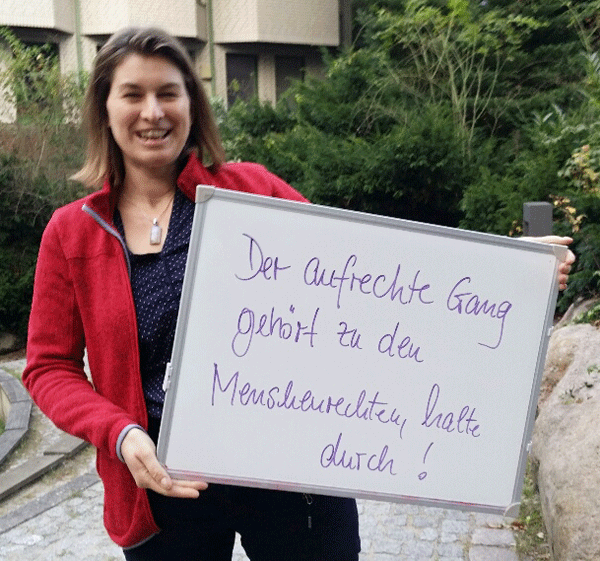 Der aufrechte Gang
gehört zu den
Menschenrechten, halte
durch!